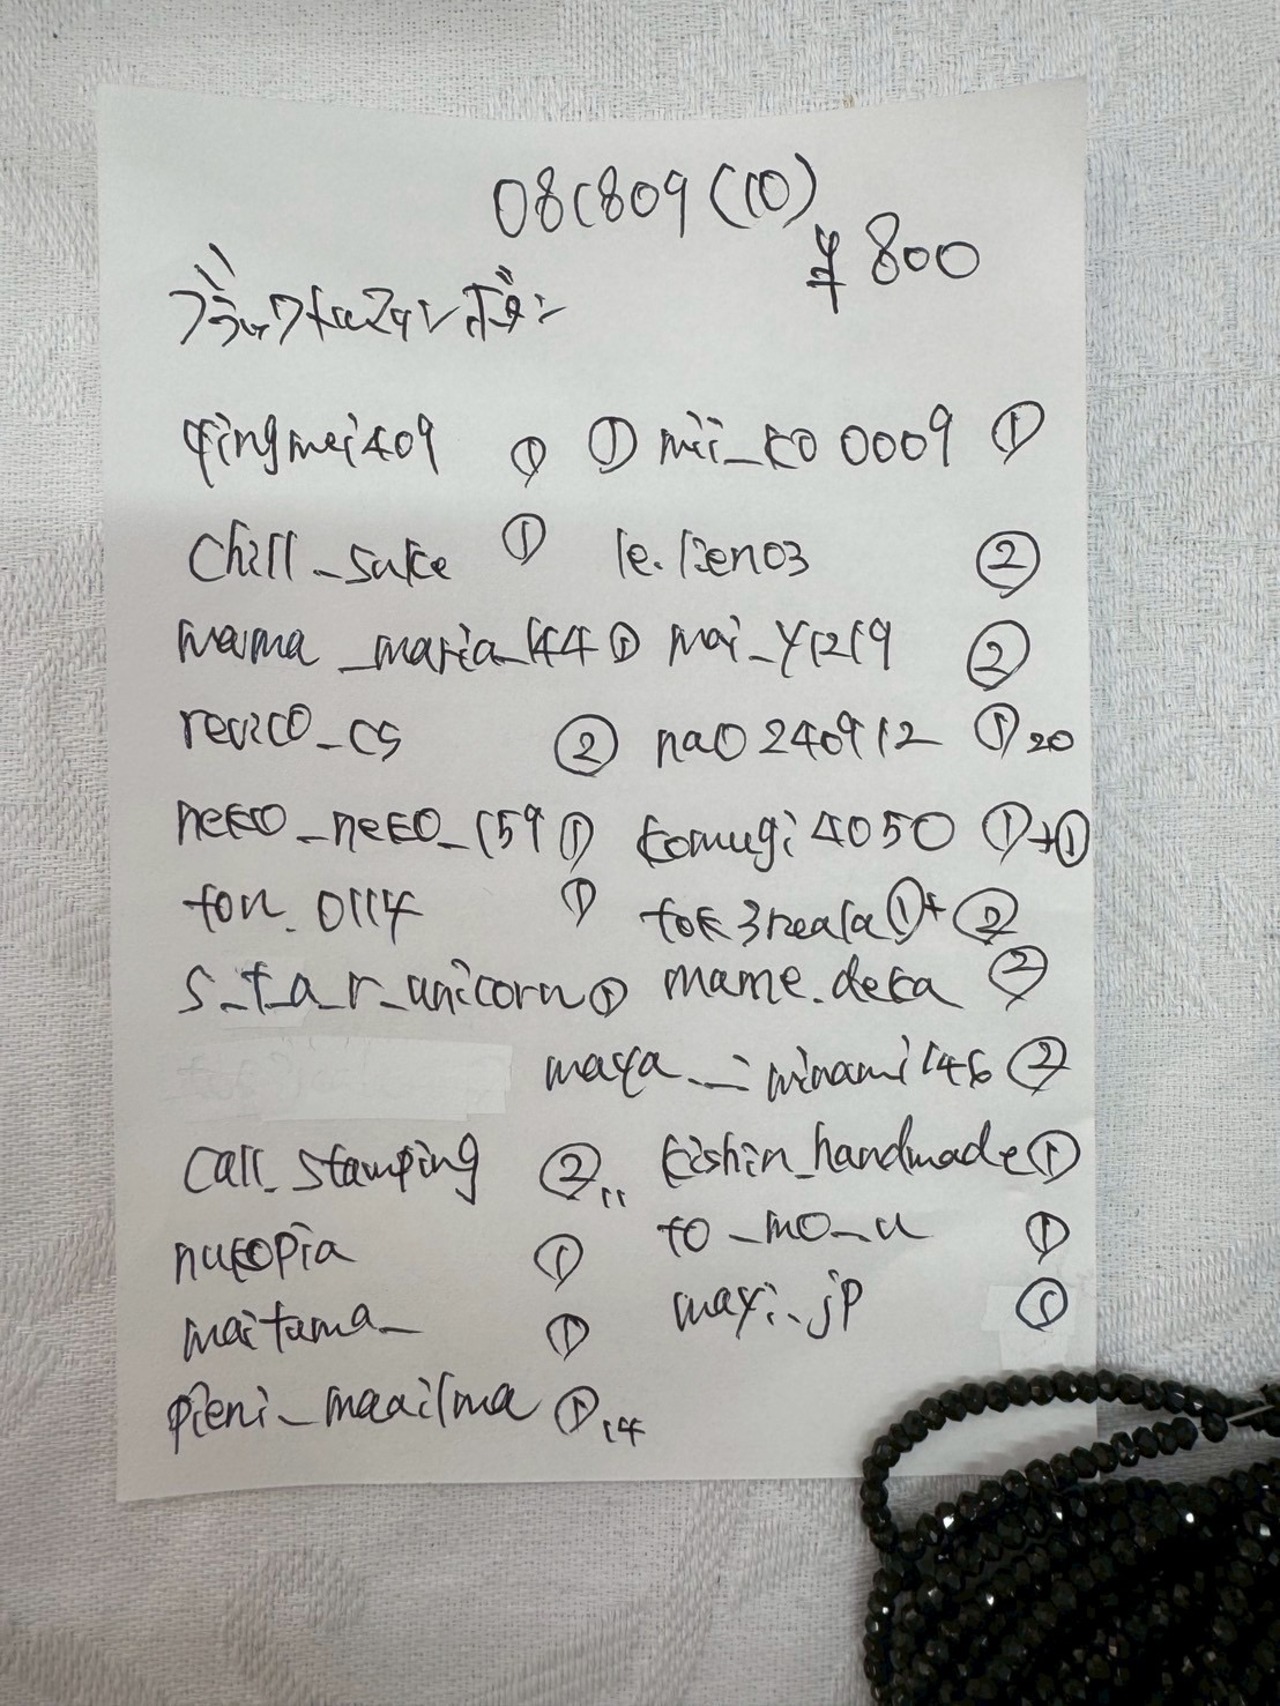 081809(10)
¥800
ブラックスピネルボタン
qingmei409 ① ① mii_ko 0009 ①
chill_sake ① le.lien03 ②
mama_maria_144 ① mai_y1219 ②
revico_cs ② nao240912 ① 20
neko_neko_159 ① komugi4050 ①+①
ton.0114 ① tok3reala ①+②
s_t_a_r_unicorn ① mame.deka ②
maya._minami146 ②
call_stamping ② 11 kishin_handmade ①
nukopia ① to_mo_u ①
maitama_ ① mayi._jp ①
pieni_maailma ① 14